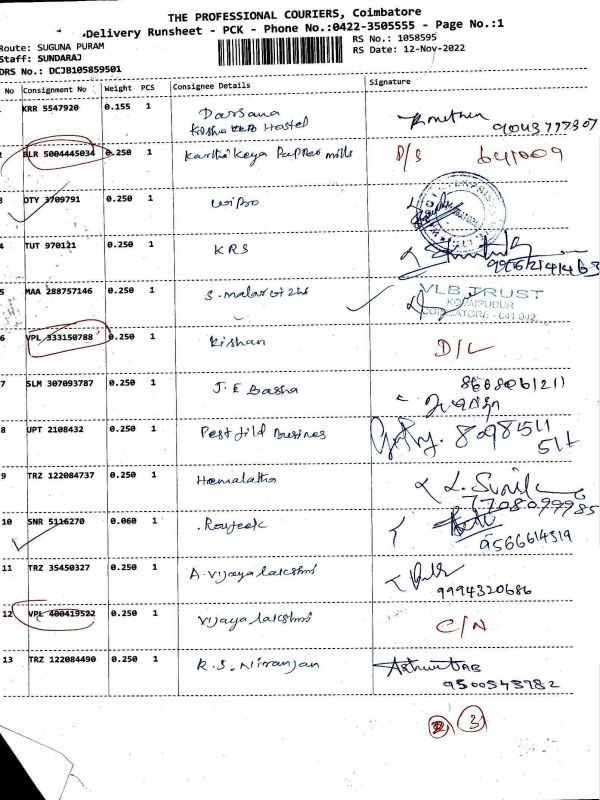 THE PROFESSIONAL COURIERS, Coimbatore
Delivery Runsheet - PCK - Phone No.:0422-3505555 - Page No.:1
Route: SUGUNA PURAM RS No.: 1058595
Staff: SUNDARAJ RS Date: 12-Nov-2022
DRS No.: DCJB105859501
No Consignment No Weight PCS Consignee Details Signature
KRR 5547920 0.155 1 Darsana
Hostel 9043777307
BLR 5004445034 0.250 1 Karthi Keya Papper mills D/S 641009
3 DTY 3709791 0.250 1 wipro
4 TUT 970121 0.250 1 KRS
5 MAA 288757146 0.250 1 S. malar
VLB TRUST
KOVAIPUDUR
COIMBATORE - 641 042
6 VPL 333150788 0.250 1 Kishan D/L
7 SLM 307093787 0.250 1 J.E Basha 8668061211
8 UPT 2108432 0.250 1 Pest fild Busines 8098 1511
511
9 TRZ 122084737 0.250 1 Hemalatha L. Sunil
7708099985
10 SNR 5116270 0.060 1
9566614519
11 TRZ 35450327 0.250 1 A. vijaya lakshmi
9994320686
12 VPL 400419522 0.250 1 vijaya lakshmi C/N
13 TRZ 122084490 0.250 1 R.S. Niranjan
9500543782
3